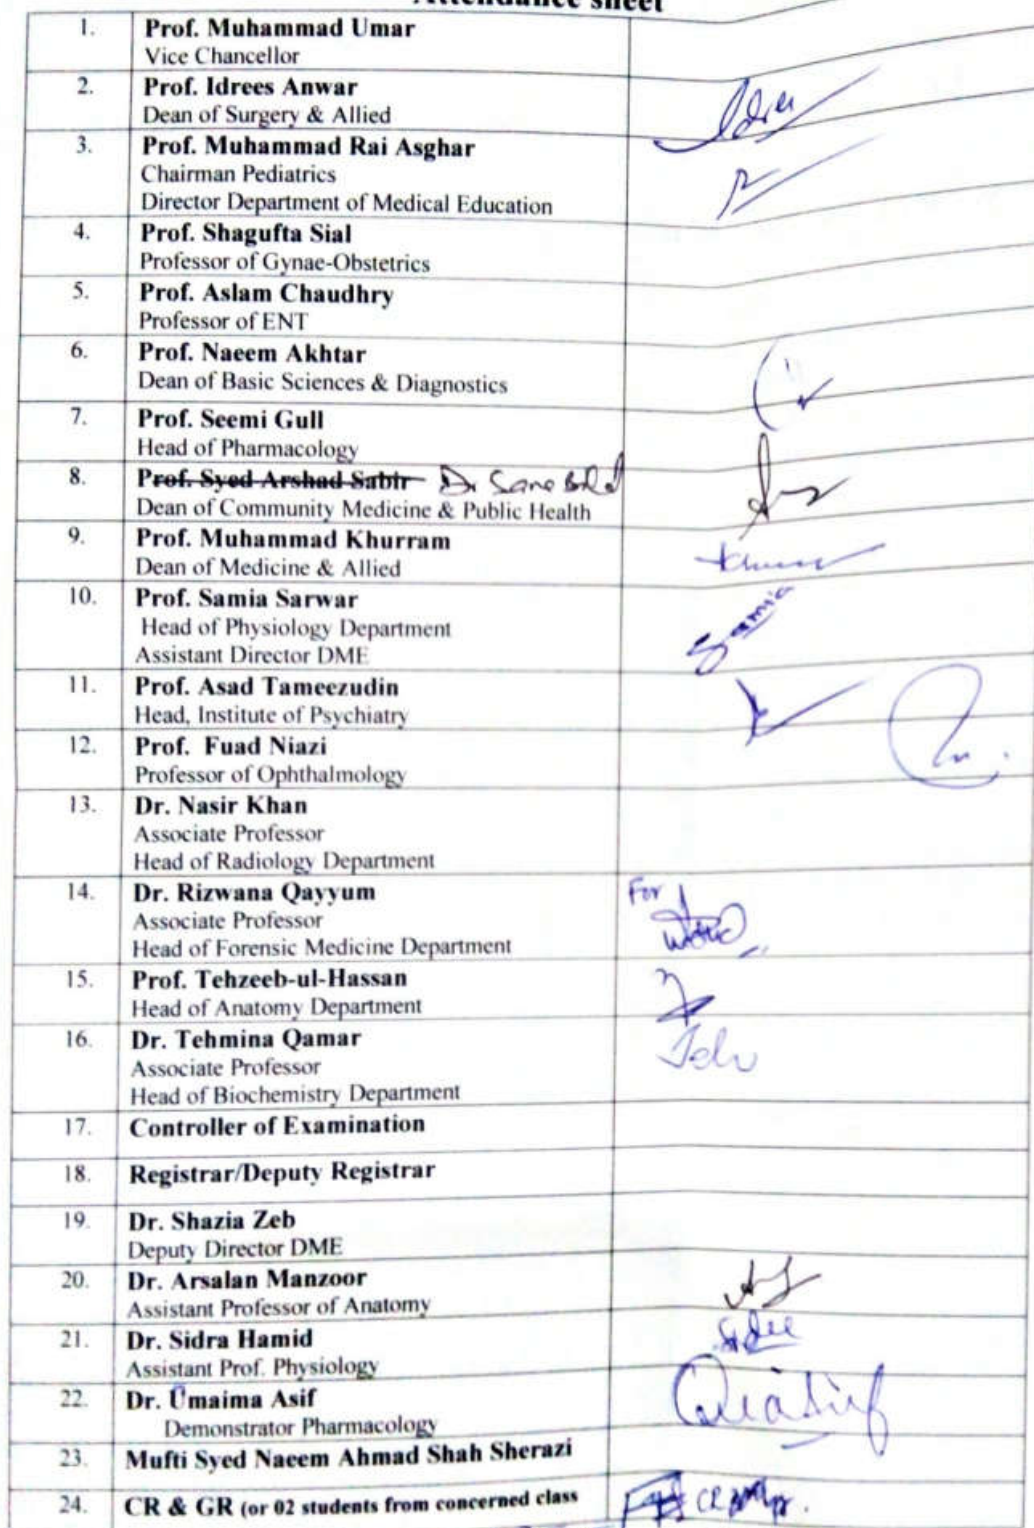 Attendance sheet
1. Prof. Muhammad Umar
Vice Chancellor
2. Prof. Idrees Anwar
Dean of Surgery & Allied
3. Prof. Muhammad Rai Asghar
Chairman Pediatrics
Director Department of Medical Education
4. Prof. Shagufta Sial
Professor of Gynae-Obstetrics
5. Prof. Aslam Chaudhry
Professor of ENT
6. Prof. Naeem Akhtar
Dean of Basic Sciences & Diagnostics
7. Prof. Seemi Gull
Head of Pharmacology
8. Prof. Syed Arshad Sabir Dr Sana
Dean of Community Medicine & Public Health
9. Prof. Muhammad Khurram
Dean of Medicine & Allied
10. Prof. Samia Sarwar Samia
Head of Physiology Department
Assistant Director DME
11. Prof. Asad Tameezudin
Head, Institute of Psychiatry
12. Prof. Fuad Niazi
Professor of Ophthalmology
13. Dr. Nasir Khan
Associate Professor
Head of Radiology Department
14. Dr. Rizwana Qayyum For
Associate Professor
Head of Forensic Medicine Department
15. Prof. Tehzeeb-ul-Hassan
Head of Anatomy Department
16. Dr. Tehmina Qamar
Associate Professor
Head of Biochemistry Department
17. Controller of Examination
18. Registrar/Deputy Registrar
19. Dr. Shazia Zeb
Deputy Director DME
20. Dr. Arsalan Manzoor
Assistant Professor of Anatomy
21. Dr. Sidra Hamid
Assistant Prof. Physiology
22. Dr. Umaima Asif
Demonstrator Pharmacology
23. Mufti Syed Naeem Ahmad Shah Sherazi
24. CR & GR (or 02 students from concerned class CR